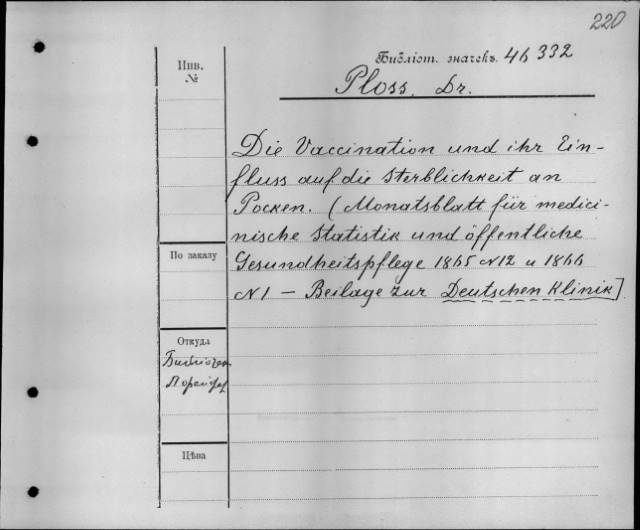 220
Библіот. значекъ. 46332
Инв.
№
Ploss. Dr.
Die Vaccination und ihr Ein-
fluss auf die Sterblichkeit an
Pocken. (Monatsblatt für medici-
nische Statistik und öffentliche
Gesundheitspflege 1865 №12 и 1866
№1 — Beilage zur Deutschen Klinik]
По заказу
Откуда
Цѣна